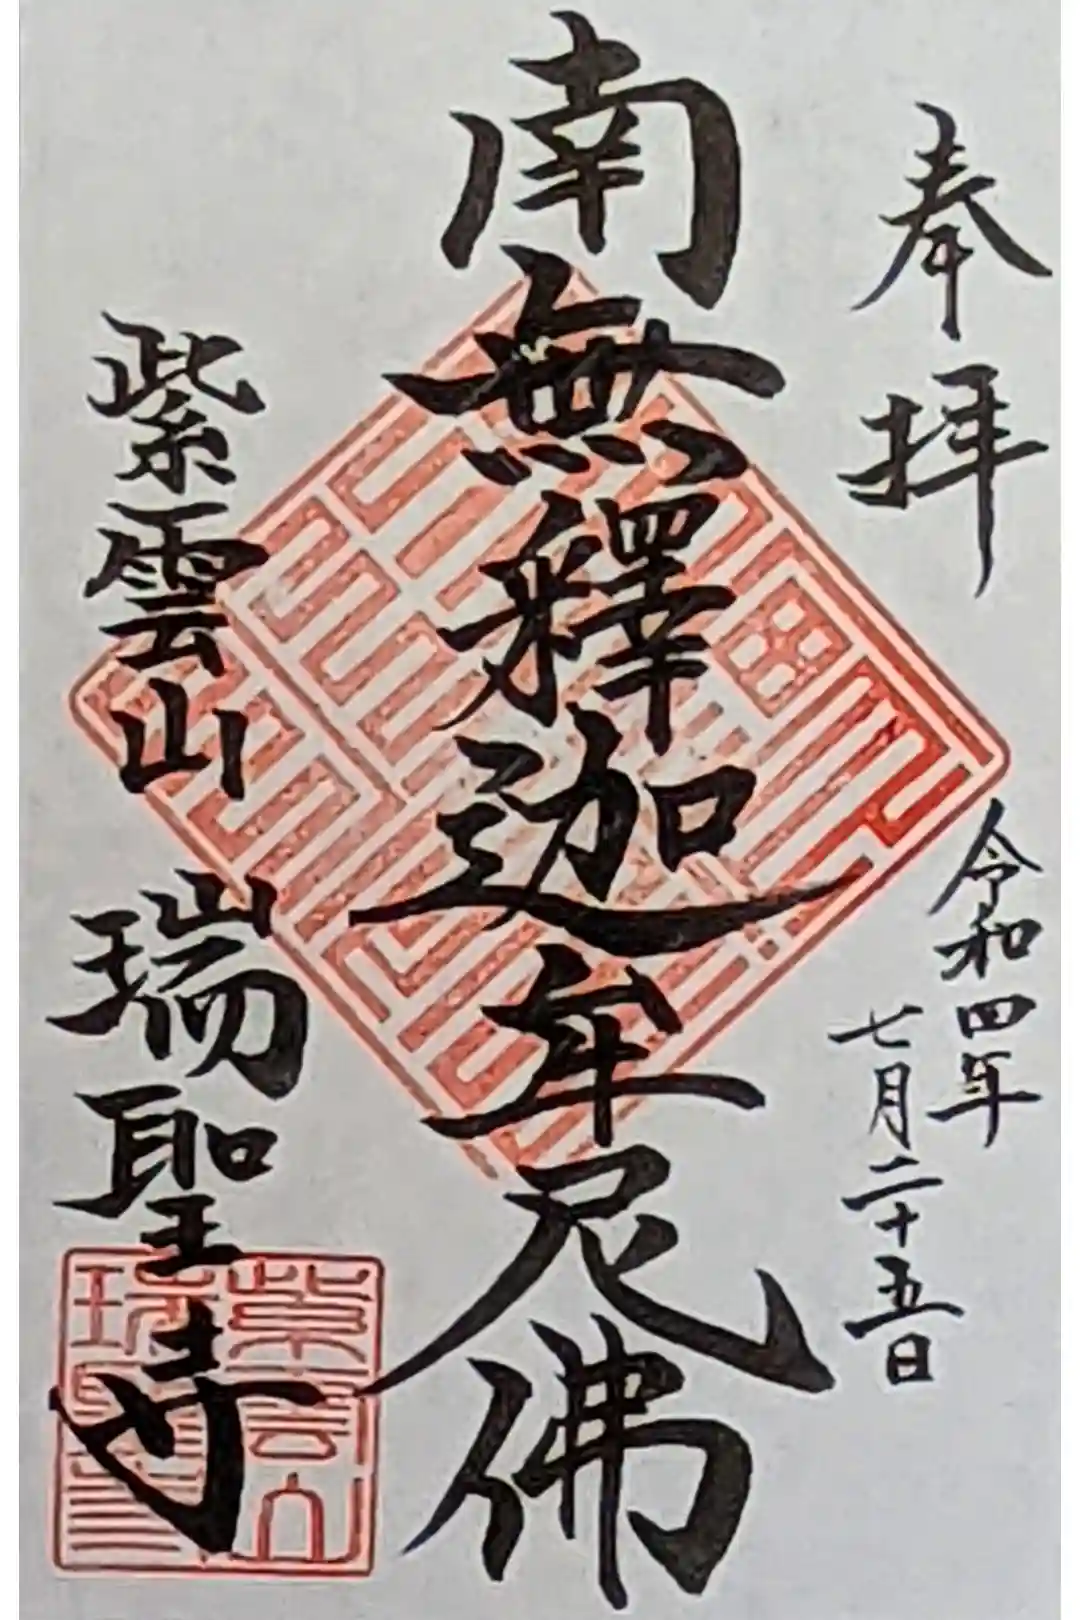 奉拝
令和四年
七月二十五日
南無釋迦牟尼佛
紫雲山 瑞聖寺